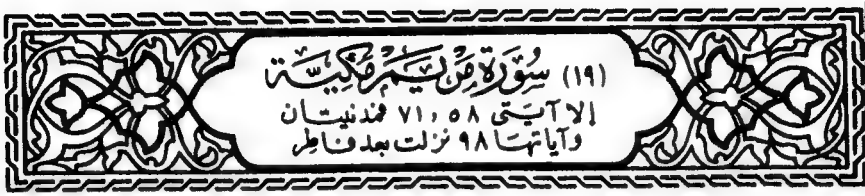 (١٩) سُورَة مَرْيَمَ مَكِّيَّة
إلا آيتى ٥٨ ، ٧١ فمدنيتان
وآياتها ٩٨ نزلت بعد فاطر